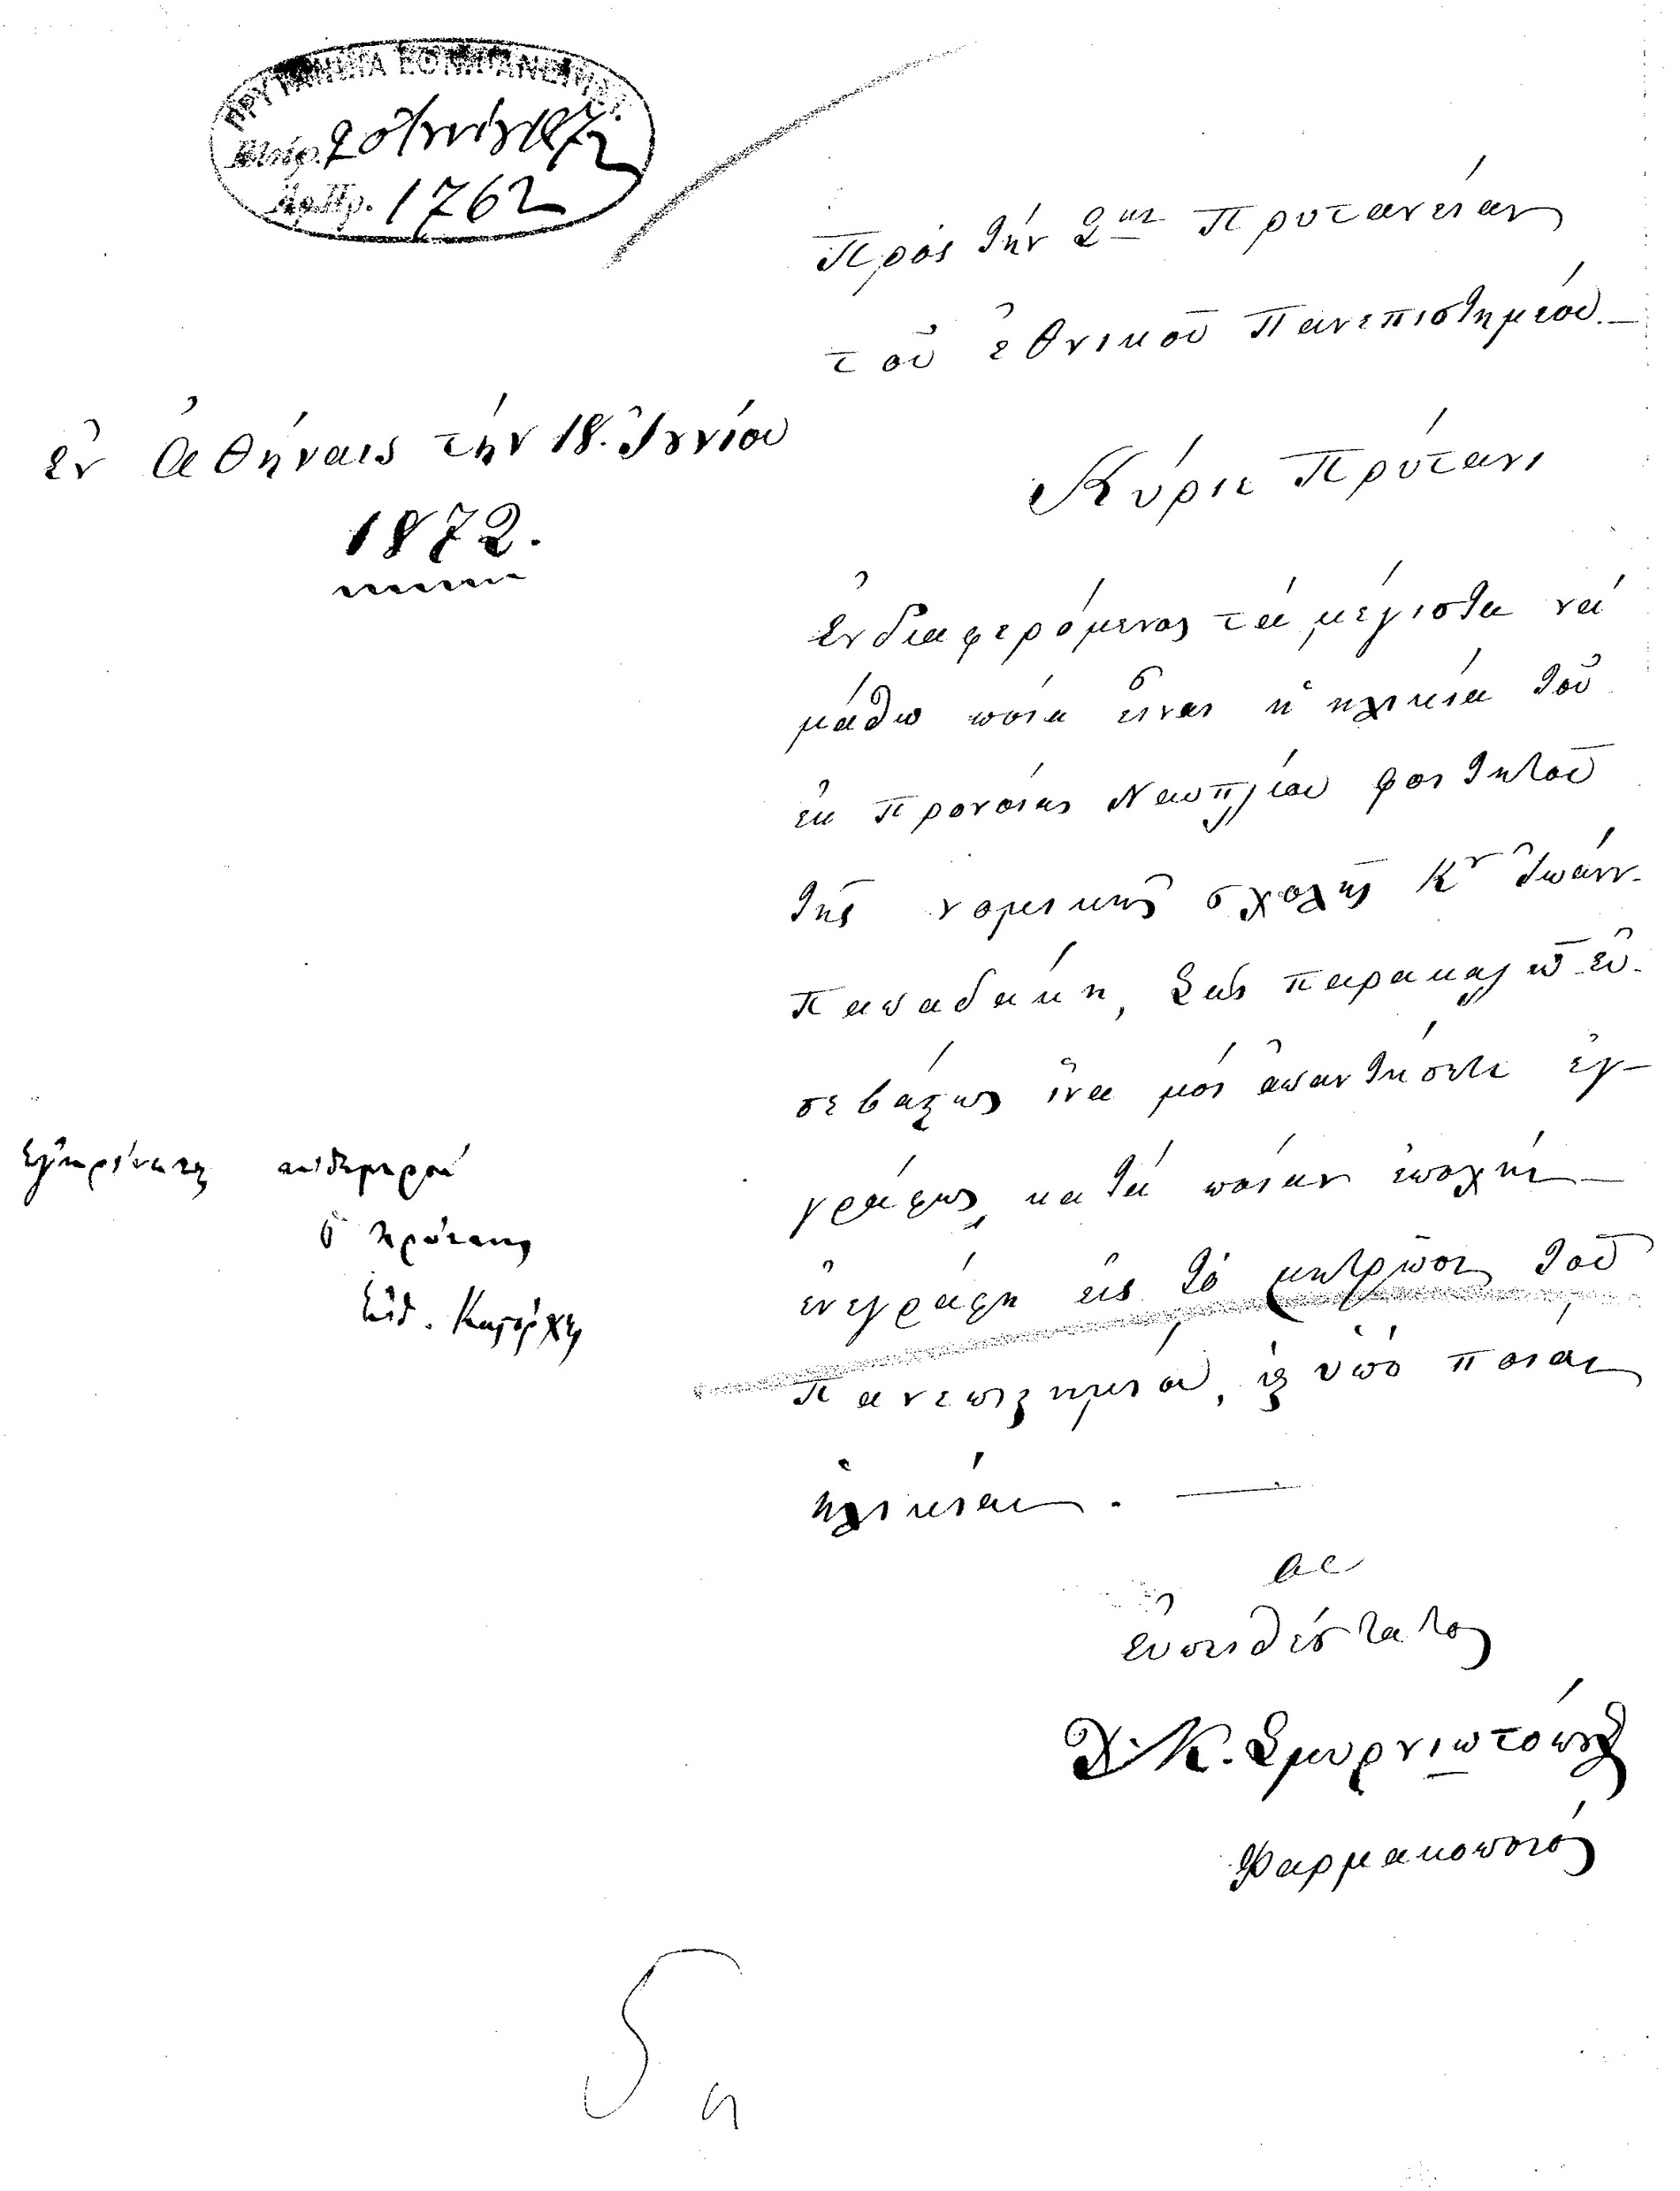 ΠΡΥΤΑΝΕΙΑ ΕΘΝ. ΠΑΝΕΠΙΣΤ.
20 Ἰουνίου 1872
Ἀρ.Πρ. 1762
Πρὸς τὴν Σὴν Πρυτανείαν
τοῦ ἐθνικοῦ Πανεπιστημίου.—
ἐν Ἀθήναις τὴν 18. Ἰουνίου
1872.
Κύριε Πρύτανι
Ἐνδιαφερόμενος τὰ μέγιστα νὰ
μάθω ποία εἶναι ἡ ἡλικία τοῦ
ἐκ Προνοίας Ναυπλίου φοιτητοῦ
τῆς νομικῆς σχολῆς Κου Ἰωάνν.
Παπαδάκη, Σᾶς παρακαλῶ εὐ-
σεβάστως ἵνα μοὶ ἀπαντήσετε ἐγ-
γράφως, κατὰ ποίαν ἐποχὴν
ἐνεγράφη εἰς τὸ μητρῷον τοῦ
Πανεπιστημίου, καὶ ὑπὸ ποίαν
ἡλικίαν. —
εὐπειθέστατος
Χ. Κ. Σμυρνιωτόπουλος
Φαρμακοποιός
αὐθημερόν
ὁ πρύτανις
Εὐθ. Καστόρχης